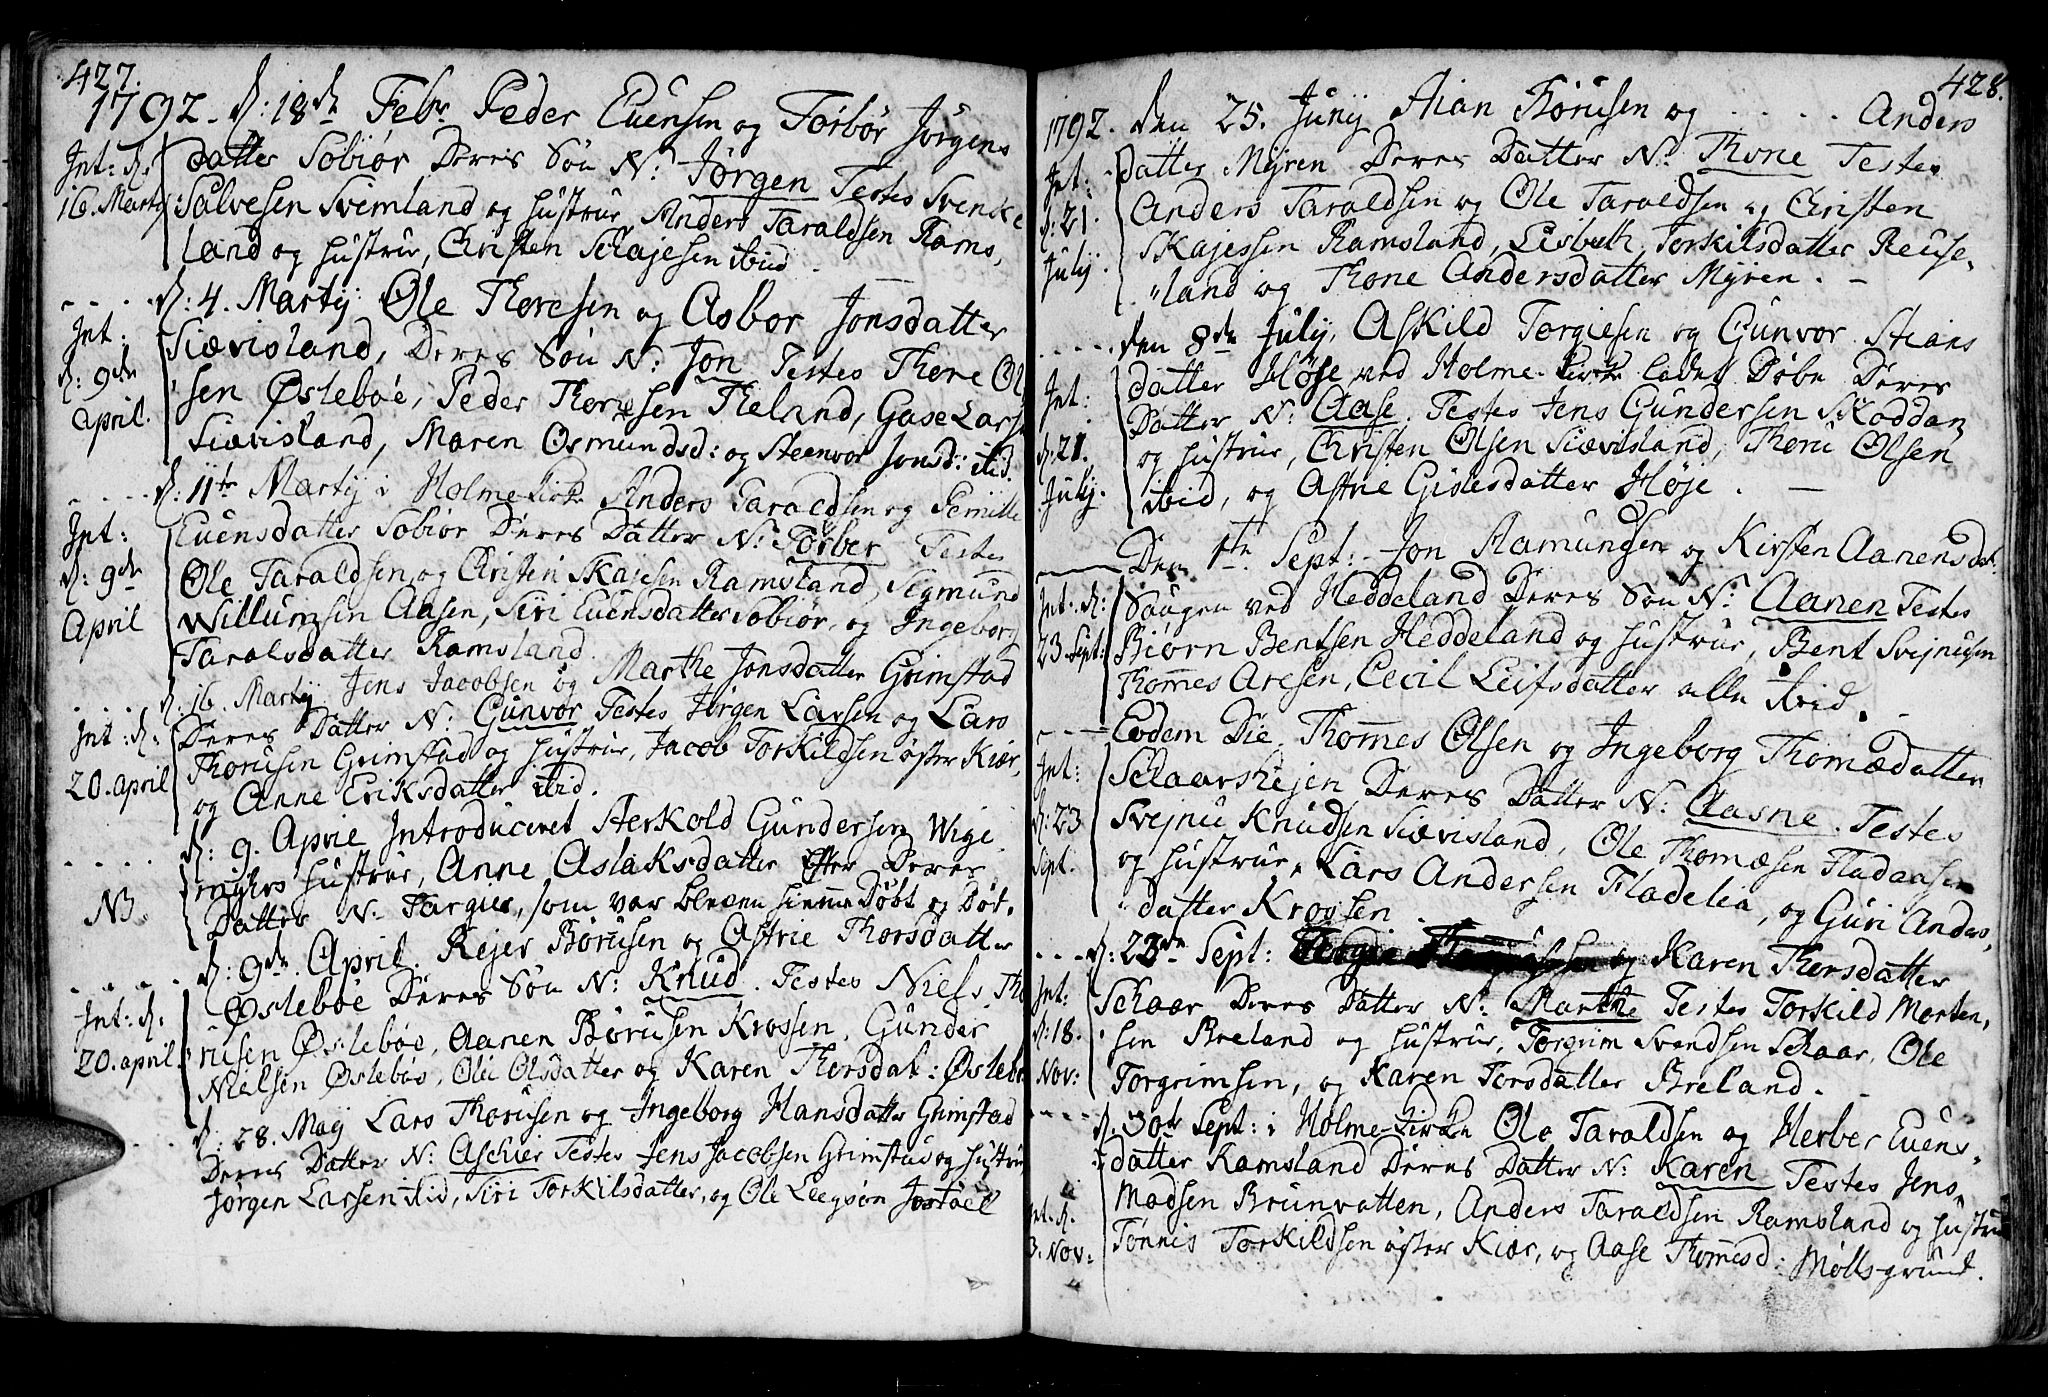 427.
1792. d: 18de Febr Peder Euensen og Torbor Jörgens
Int: d. datter Sobiör Deres Sön N: Jörgen Testes Svenke
16. Martÿ Salvesen Svimland og hustrue, Anders Taraldsen Rams,
land og hustrue, Christen Skajesen ibid.
d: 4. Martÿ Ole Thoresen og Asbor Jonsdatter
Int: Siævisland, Deres Sön N: Jon Testes Thore Ol,
d: 9de sen Øsleboe, Peder Thoresen Theland, Gase Lars
April. Siævisland, Maren Osmundsd: og Steenvor Jonsd: ibid.
d: 11te Martÿ i Holme Kirke Anders Taraldsen og Pernille
Int: Euensdatter Sobiör Deres Datter N: Torber Testes
d: 9de Ole Taraldsen og Christen Skajesen Ramsland, Segmund
April Willumsen Aasen, Siri Euensdatter Sobiör, og Ingeborg
Taralsdatter Ramsland.
d. 16. Martÿ Jens Jacobsen og Marthe Jonsdatter Grimstad
Int: d. Deres Datter N: Gunvor Testes Jörgen Larsen og Lars
20. april Thorusen Grimstad og hustrue, Jacob Torkildsen öster Kiær,
og Anne Eriksdatter ibid.
d: 9. April Introduceret Sterkold Gundersen Wige
NB. mÿhrs hustrue, Anne Aslaksdatter Efter Deres
Datter N: Targier, som var bleven hiemme Döbt og Döt.
d: 9de April. Rejer Börusen og Astrie Thorsdatter
Int: d. Øsleboe Deres Sön N: Knud. Testes Niels Tho
20. april. rusen Øsleboe, Aanen Börusen Krossen, Gunder
Nielsen Øsleboe, Olei Olsdatter og Karen Thorsdat: Øslebo
d: 28. Maÿ Lars Thorusen og Ingeborg Hansdatter Grimstad
Deres Datter N: Aschier Testes Jens Jacobsen Grimstad og hustrue
Jörgen Larsen ibid, Siri Torkilsdatter, og Ole Leegsön Jostöel
428.
1792. den 25. Junÿ Stian Börusen og . . . . Anders
Int: datter Mÿren Deres Datter N: Thone Testes
d: 21. Anders Taraldsen og Ole Taraldsen og Christen
Julÿ. Skajessen Ramsland, Lisbeth Torkilsdatter Reuse,
land og Thone Andersdatter Mÿren.
den 8de Julÿ, Askild Torgiesen og Gunvor Stians
Int: datter Höje ved Holme Kirke ladet Döbe Deres
d: 21. Datter N: Aase. Testes Jens Gundersen Skoddan
Julÿ. og hustrue, Christen Olsen Siævisland, Thoru Olsen
ibid, og Astrie Gislesdatter Höje.
Den 1te Sept: Jon Ramundsen og Kirsten Aanensdat:
Int: d: Saugen ved Heddeland Deres Sön N: Aanen Testes
23 Sept: Biörn Bentsen Heddeland og hustrue, Bent Svejnusen
Thommes Aresen, Cecil Leifsdatter alle ibid.
Eodem Die Thommes Olsen og Ingeborg Thomædatter
Int: Schaarshejen Deres Datter N: Aasne. Testes
d: 23 Svejnu Knudsen Siævisland, Ole Thomæsen Fladaasen
Sept. og hustrue, Lars Andersen Fladelia, og Guri Anders,
datter Krossen.
d: 23de Sept: og Karen Thorsdatter
Int: Schaar Deres Datter N: Marthe Testes Torkild Morten,
d: 18. sen Breland og hustrue, Torgrim Svendsen Schaar, Ole
Nov: Torgrimsen, og Karen Torsdatter Breland.
d. 30te Sept: i Holme Kirke Ole Taraldsen og Herber Euens,
datter Ramsland Deres Datter N: Karen Testes Jens
Int. d. Madsen Brunvatten, Anders Taraldsen Ramsland og hustrue
3. Nov: Tönnis Torkildsen öster Kiær, og Aase Thommesd: Mölls-grund.